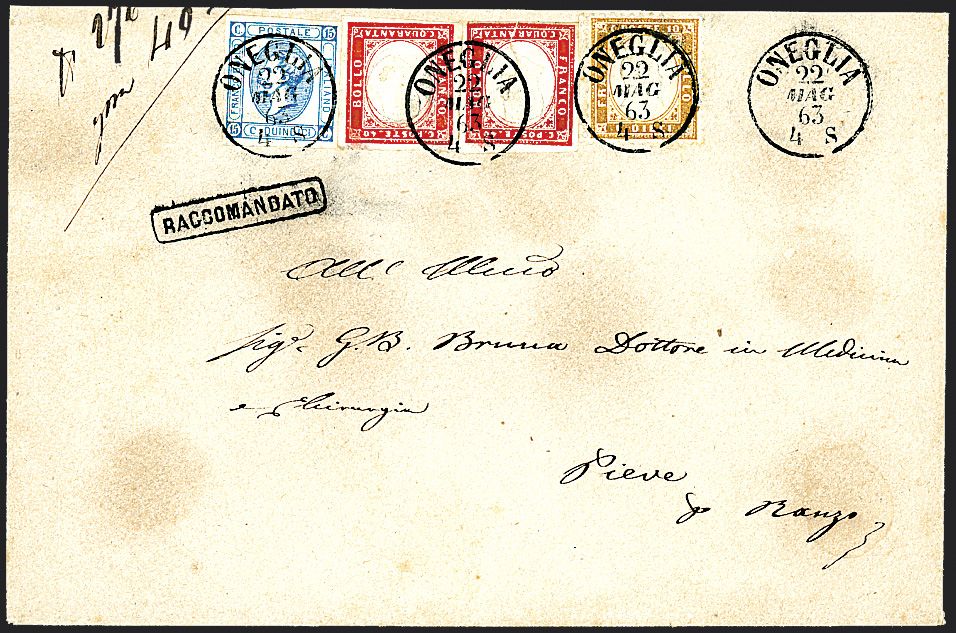 C. POSTALE 15
FRAN
ITALIANO
15 C. QUINDICI
C. QUARANTA
BOLLO
FRANCO
C. POSTE. 40
C. QUARANTA
FRANCO
C. POSTE. 40
POSTE 10
ONEGLIA
22
MAG
63
4 S
ONEGLIA
22
MAG
63
4 S
ONEGLIA
22
MAG
63
4 S
ONEGLIA
22
MAG
63
4 S
RACCOMANDATO
All' Illmo
Sigr G. B. Bruna Dottore in Medicina
e Chirurgia
Pieve
Ranzo